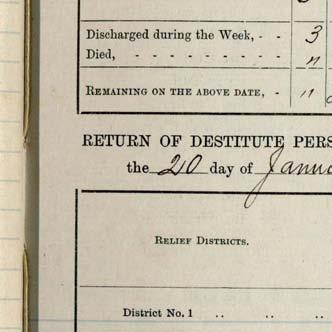 Discharged during the Week, - - 3
Died, - - - - - - - - "
REMAINING ON THE ABOVE DATE, - "
RETURN OF DESTITUTE PERS
the 20 day of Janua
RELIEF DISTRICTS.
District No. 1 .. .. ..